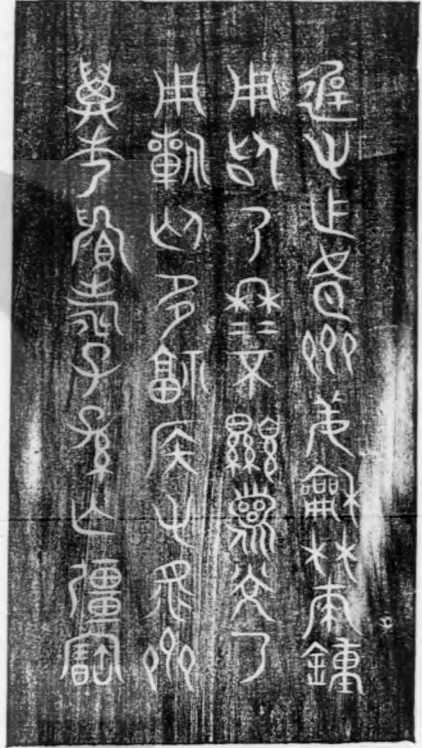 遲父乍姬齊姜龢林鍾
用卲乃穆=不顯龍光乃
用旂匄多福侯父眔齊
萬年眉壽子孫亡彊寶